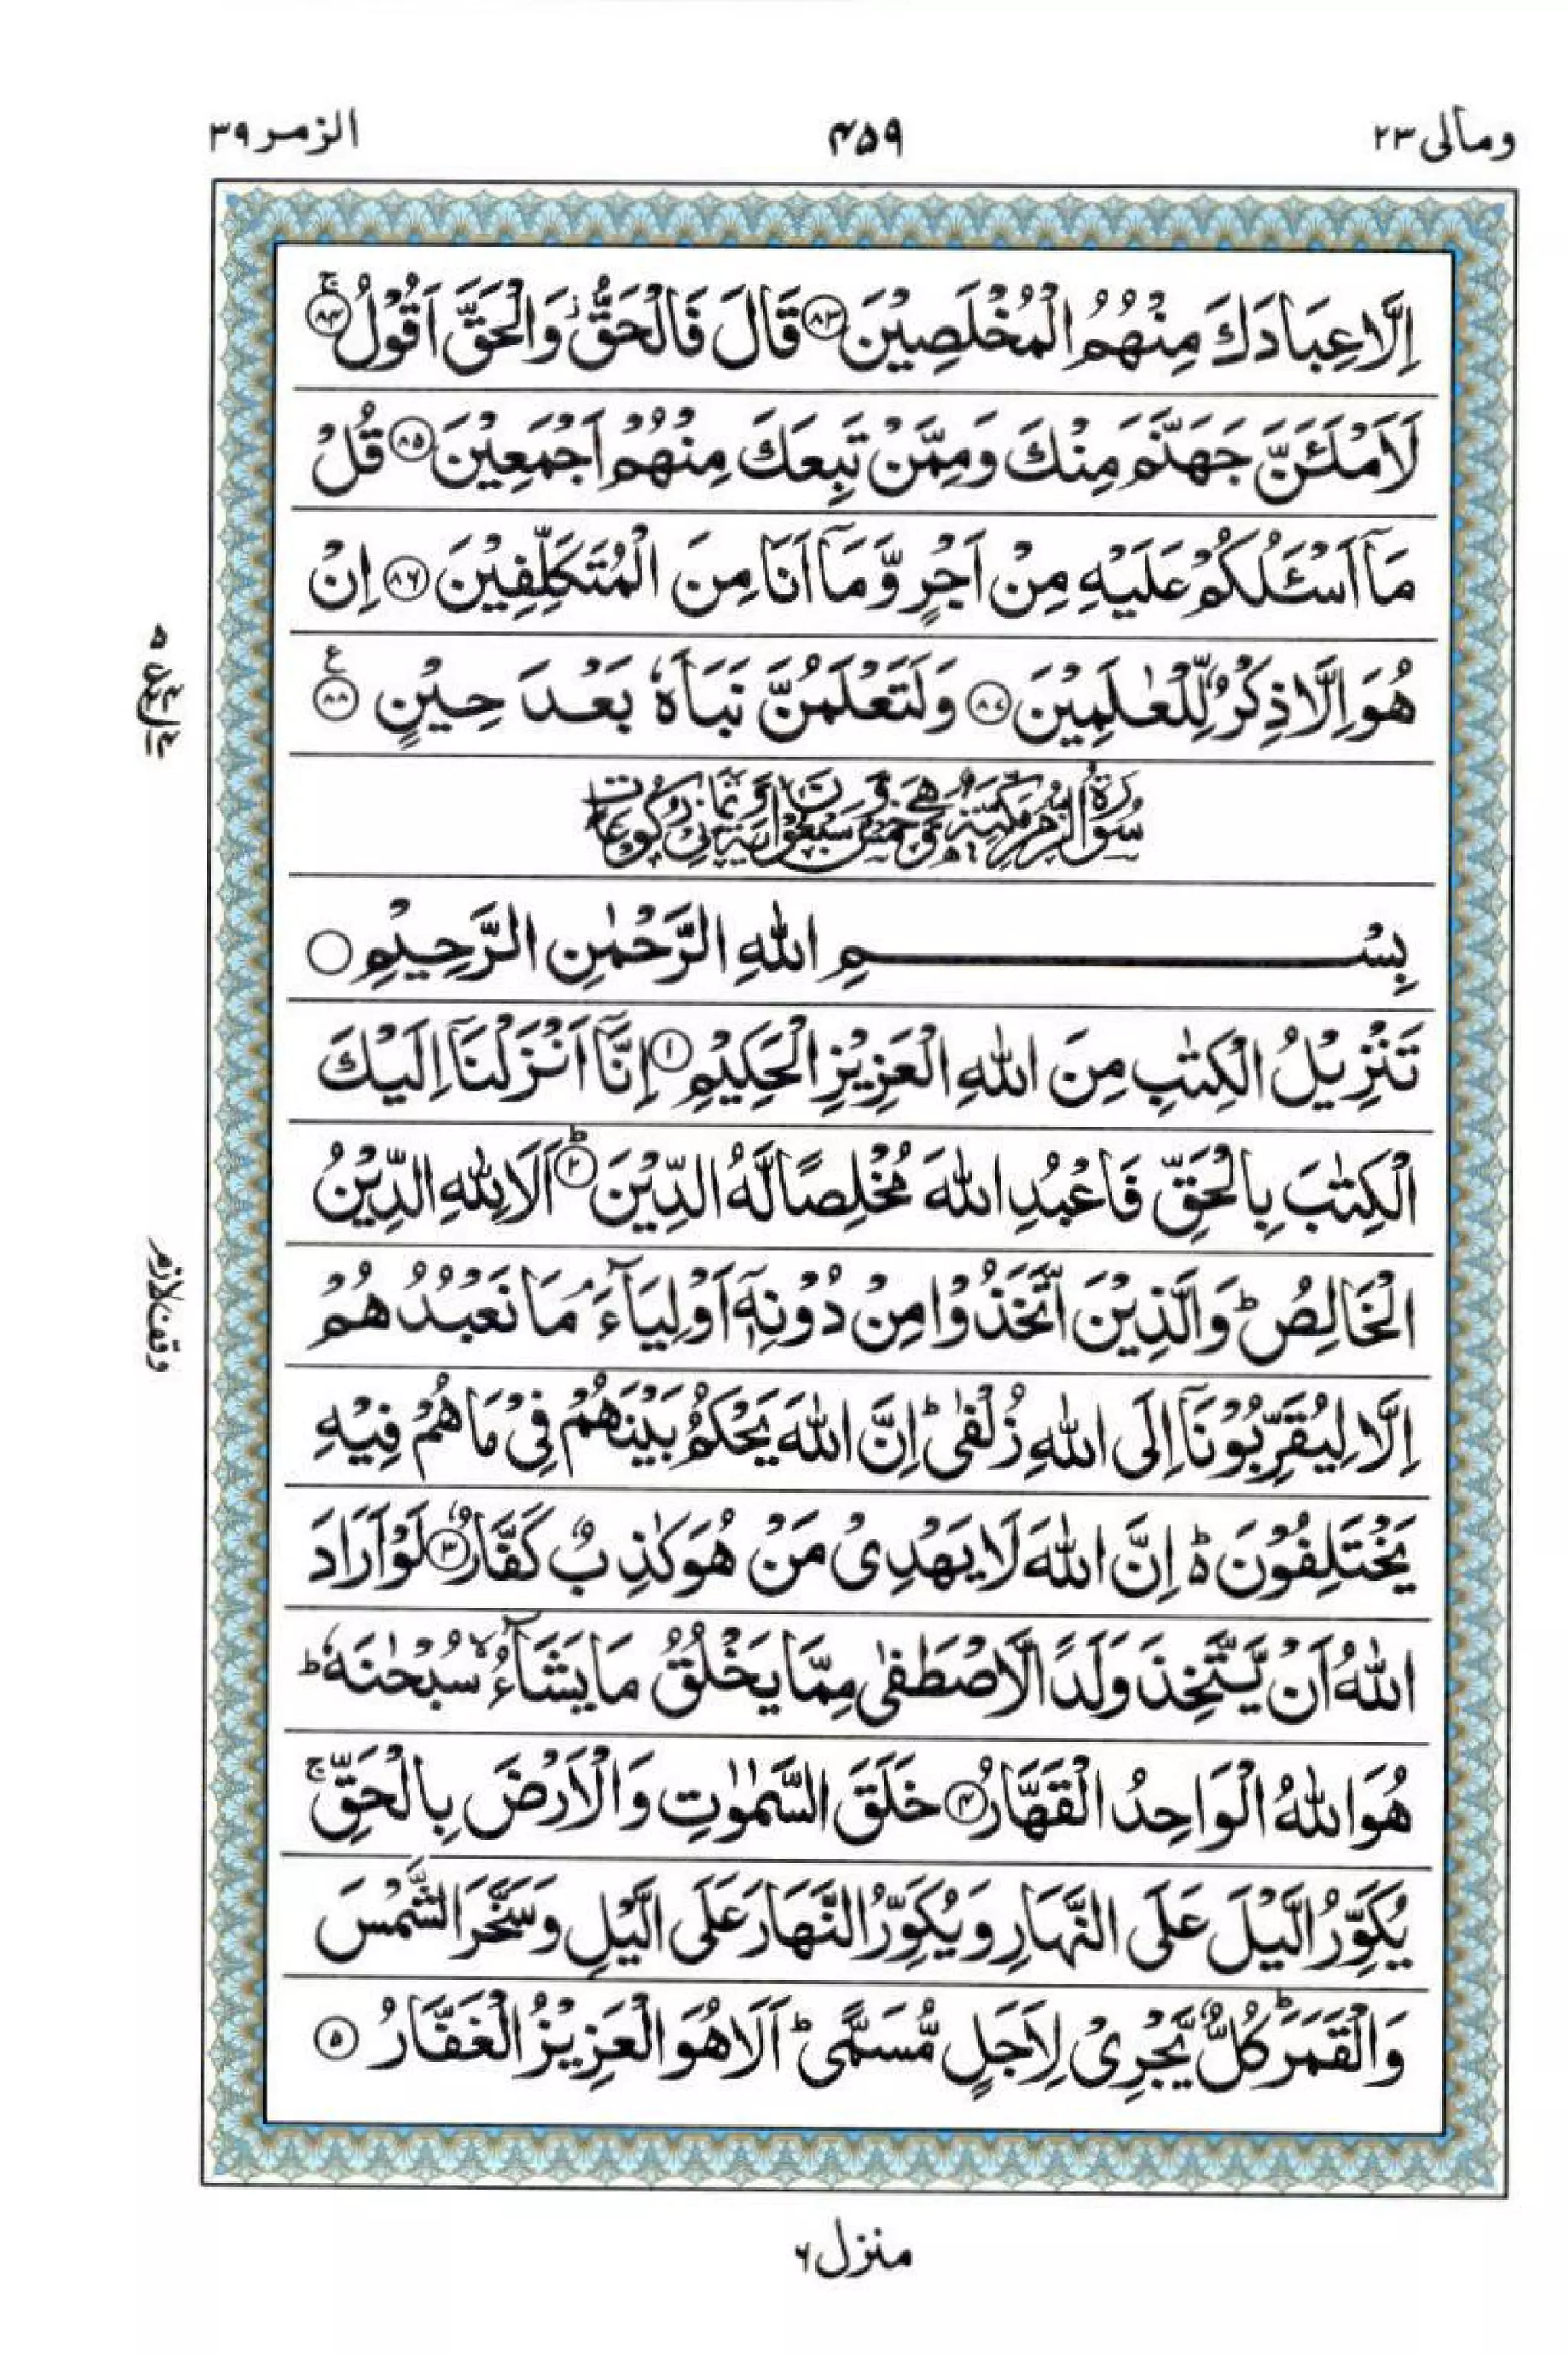 ومالی ۲۳
۴۵۹
الزمر ۳۹
اِلَّا عِبَادَكَ مِنْهُمُ الْمُخْلَصِيْنَ ﴿۸۳﴾ قَالَ فَالْحَقُّ ؗ وَالْحَقَّ اَقُوْلُ ﴿۸۴﴾ۚ
لَاَمْلَـَٔنَّ جَهَنَّمَ مِنْكَ وَمِمَّنْ تَبِعَكَ مِنْهُمْ اَجْمَعِيْنَ ﴿۸۵﴾ قُلْ
مَاۤ اَسْـَٔلُكُمْ عَلَيْهِ مِنْ اَجْرٍ وَّمَاۤ اَنَا مِنَ الْمُتَكَلِّفِيْنَ ﴿۸۶﴾ اِنْ
هُوَ اِلَّا ذِكْرٌ لِّلْعٰلَمِيْنَ ﴿۸۷﴾ وَلَتَعْلَمُنَّ نَبَاَهٗ بَعْدَ حِيْنٍ ﴿۸۸﴾ ع
سُوْرَةُ الزُّمَرِ مَكِّيَّةٌ وَّهِيَ خَمْسٌ وَّسَبْعُوْنَ اٰيَةً وَّثَمَانِيْ رُكُوْعَاتٍ
بِسْمِ اللّٰهِ الرَّحْمٰنِ الرَّحِيْمِ ○
تَنْزِيْلُ الْكِتٰبِ مِنَ اللّٰهِ الْعَزِيْزِ الْحَكِيْمِ ﴿۱﴾ اِنَّاۤ اَنْزَلْنَاۤ اِلَيْكَ
الْكِتٰبَ بِالْحَقِّ فَاعْبُدِ اللّٰهَ مُخْلِصًا لَّهُ الدِّيْنَ ﴿۲﴾ؕ اَلَا لِلّٰهِ الدِّيْنُ
الْخَالِصُ ؕ وَالَّذِيْنَ اتَّخَذُوْا مِنْ دُوْنِهٖۤ اَوْلِيَآءَ ۘ مَا نَعْبُدُهُمْ
اِلَّا لِيُقَرِّبُوْنَاۤ اِلَى اللّٰهِ زُلْفٰى ؕ اِنَّ اللّٰهَ يَحْكُمُ بَيْنَهُمْ فِيْ مَا هُمْ فِيْهِ
يَخْتَلِفُوْنَ ؕ۬ اِنَّ اللّٰهَ لَا يَهْدِيْ مَنْ هُوَ كٰذِبٌ كَفَّارٌ ﴿۳﴾ لَوْ اَرَادَ
اللّٰهُ اَنْ يَّتَّخِذَ وَلَدًا لَّاصْطَفٰى مِمَّا يَخْلُقُ مَا يَشَآءُ ۙ سُبْحٰنَهٗ ؕ
هُوَ اللّٰهُ الْوَاحِدُ الْقَهَّارُ ﴿۴﴾ خَلَقَ السَّمٰوٰتِ وَالْاَرْضَ بِالْحَقِّ ۚ
يُكَوِّرُ الَّيْلَ عَلَى النَّهَارِ وَيُكَوِّرُ النَّهَارَ عَلَى الَّيْلِ وَسَخَّرَ الشَّمْسَ
وَالْقَمَرَ ؕ كُلٌّ يَّجْرِيْ لِاَجَلٍ مُّسَمًّى ؕ اَلَا هُوَ الْعَزِيْزُ الْغَفَّارُ ﴿۵﴾
وقف لازم
منزل ۶